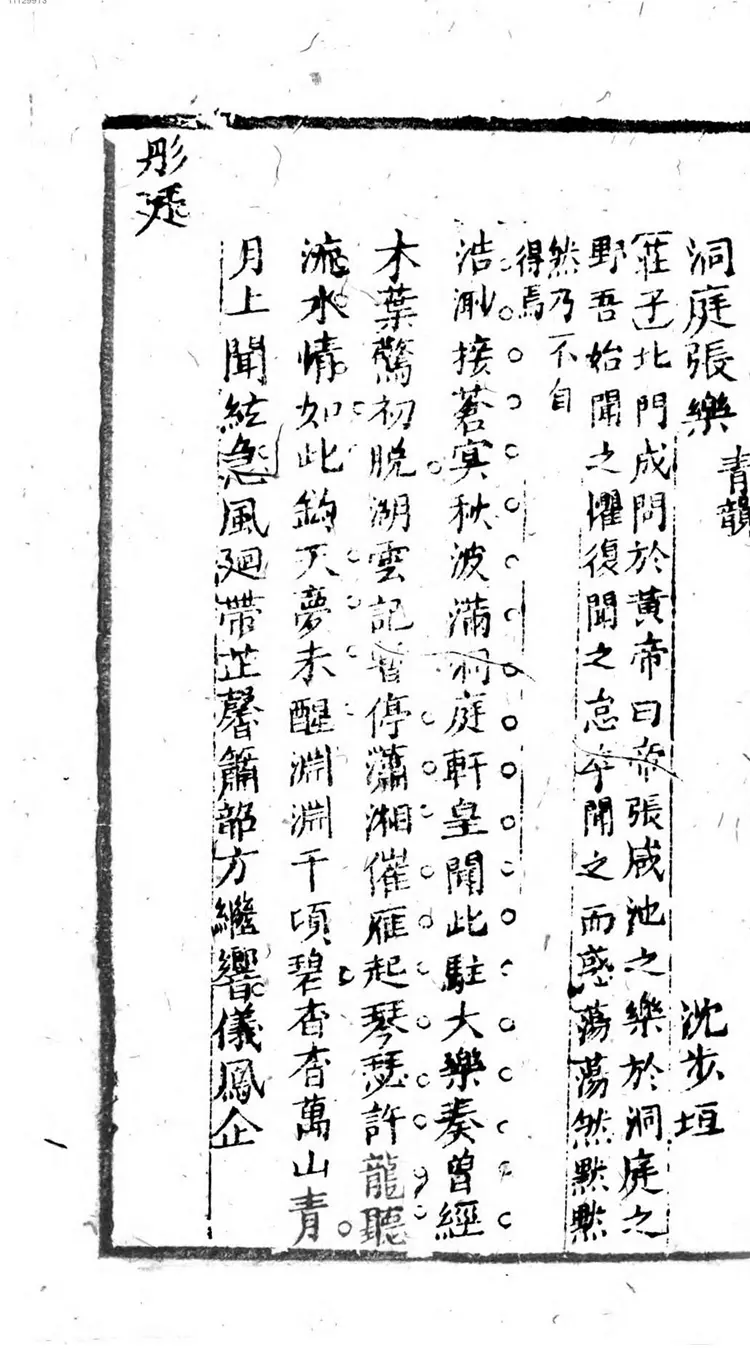 11129973
洞庭張樂
青韻
沈步垣
莊子北門成問於黃帝曰帝張咸池之樂於洞庭之
野吾始聞之懼復聞之怠卒聞之而惑蕩蕩然默默
然乃不自
得焉
浩渺接蒼冥秋波滿洞庭軒皇聞此駐大樂奏曾經
木葉驚初脫湖雲記暫停瀟湘催雁起琴瑟許龍聽
流水情如此鈞天夢未醒淵淵千頃碧杳杳萬山青
月上聞絃急風廻帶芷馨簫韶方繼響儀鳳企
彤廷